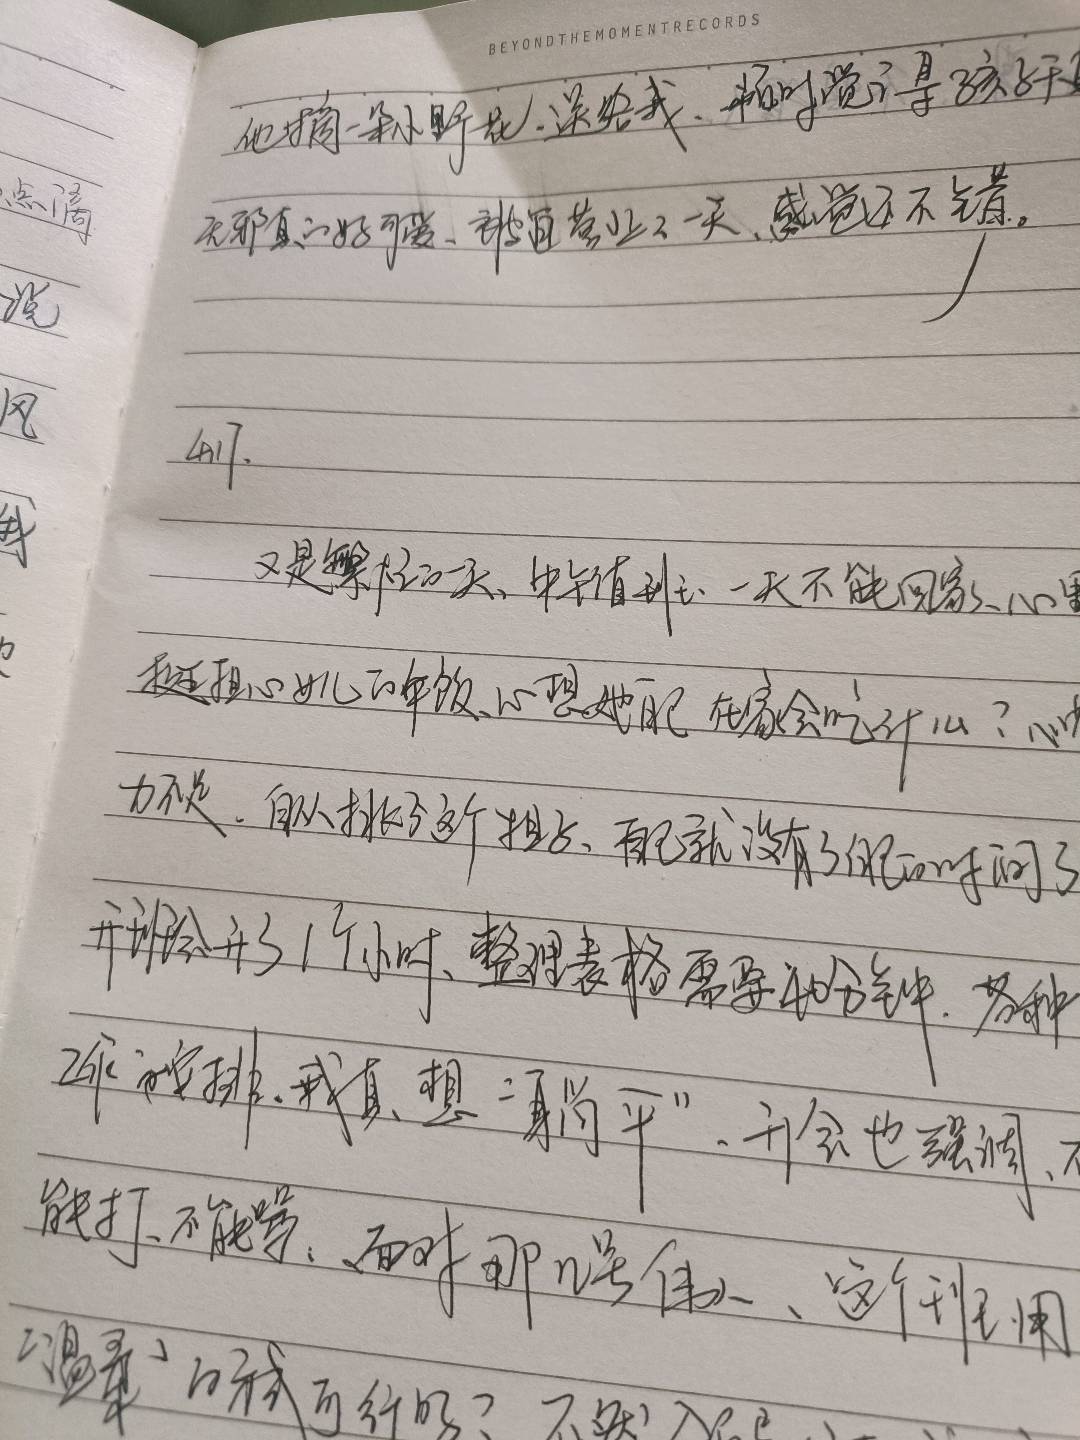 BEYONDTHEMOMENTRECORDS
点滴
他摘一朵小野花、送给我、顿时觉得是孩子天真
说
无邪真的好可爱、被迫营业了一天、感觉还不错。
风
4.17.
我
又是繁忙的一天、中午值到、一天不能回家、心里
挺担心女儿的午饭、心想她自己在家会吃什么？心
力不足、自从挑了这个担子、自己就没有了自己的时间了
开班会开了1个小时、整理表格需要40分钟、各种
工作安排、我真想“躺平”、开会也强调、不
能打、不能骂、面对那几号人、这个利用
“温柔”的形式可行吗？不